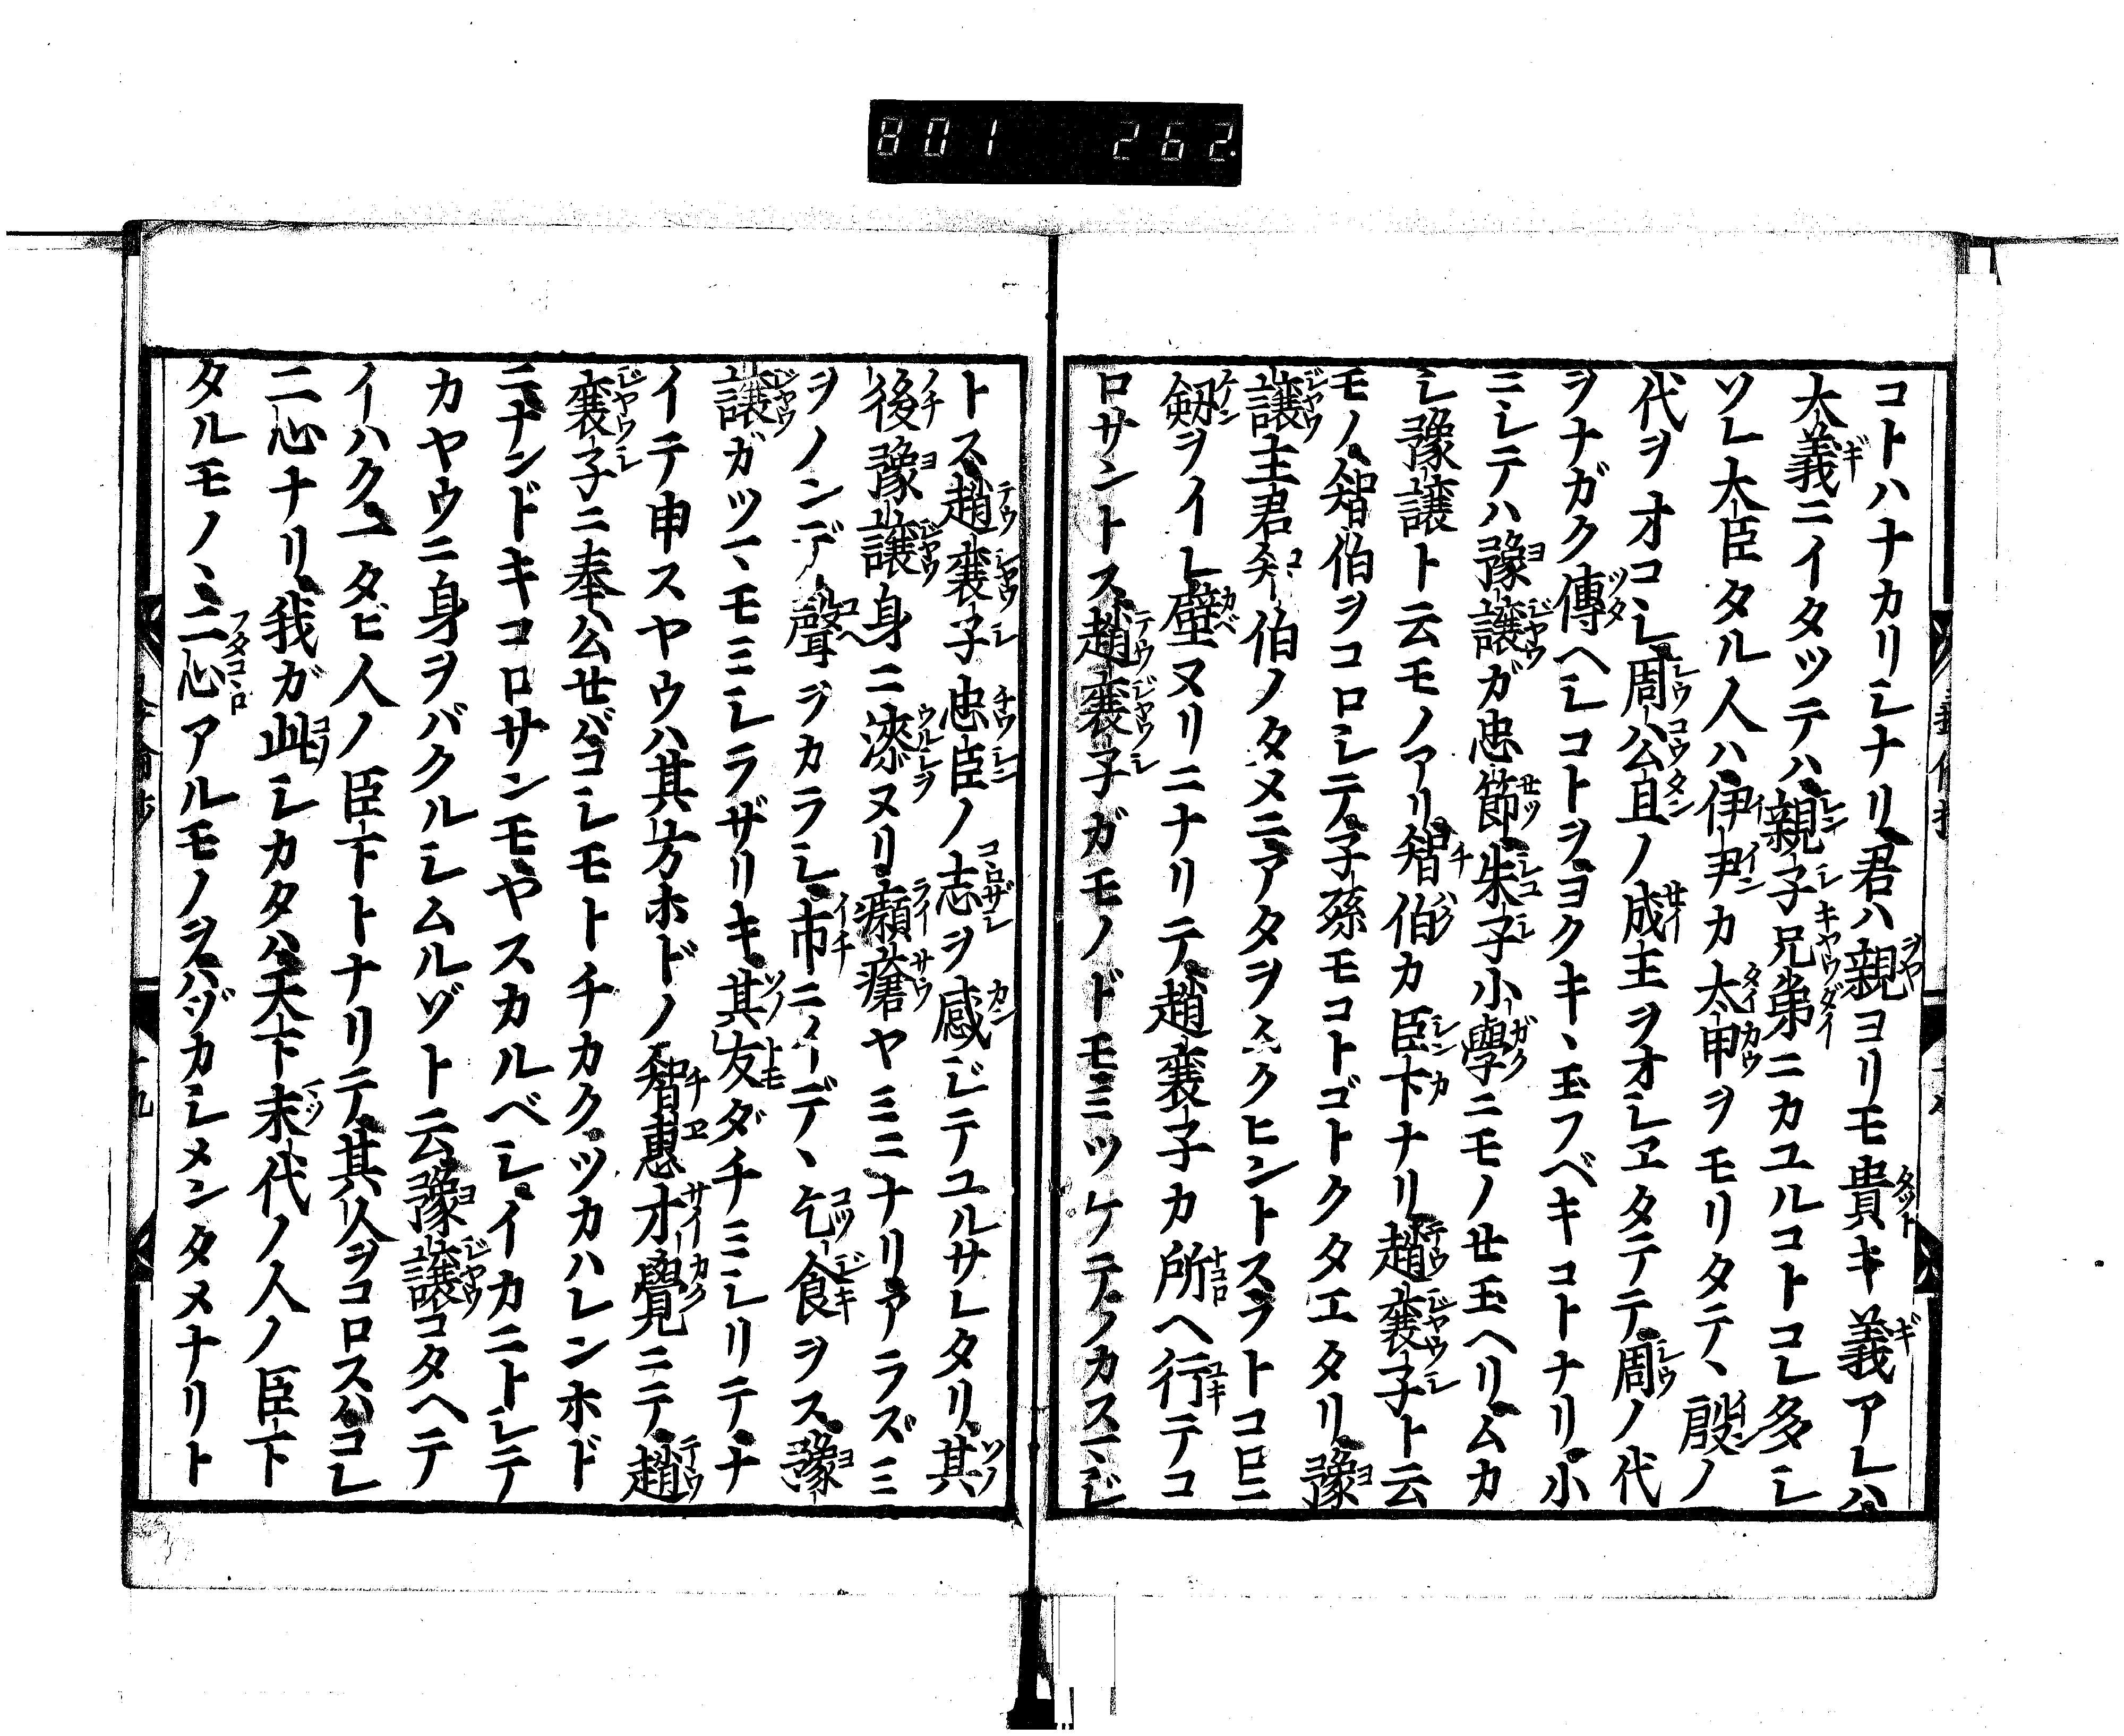 801 262
コトハナカリシナリ君ハ親ヨリモ貴キ義アレハ
大義ニイタツテハ親子兄弟ニカユルコトコレ多シ
ソレ大臣タル人ハ伊尹カ太甲ヲモリタテヽ殷ノ
代ヲオコシ周公旦ノ成王ヲオシヱタテテ周ノ代
ヲナガク傳ヘシコトヲヨクキヽ玉フベキコトナリ小
ニシテハ豫譲ガ忠節朱子小學ニモノせ玉ヘリムカ
シ豫譲ト云モノアリ智伯カ臣下ナリ趙襄子ト云
モノ智伯ヲコロシテ子孫モコトゴトクタエタリ豫
譲主君智伯ノタメニアタヲムクヒントスラトコロニ
劔ヲイレ壁ヌリニナリテ趙襄子カ所ヘ行テコ
ロサントス趙襄子ガモノドモミツケテノカスマジ
トス趙襄子忠臣ノ志ヲ感ジテユルサレタリ其
後豫譲身ニ漆ヌリ癩瘡ヤミニナリアラズミ
ヲノンデ聲ヲカラシ市ニイデヽ乞食ヲス豫
譲ガツマモミシラザリキ其友ダチミシリテナ
イテ申スヤウハ其方ホドノ智惠才覺ニテ趙
襄子ニ奉公せバコシモトチカクツカハレンホド
ニナンドキコロサンモヤスカルベシイカニトシテ
カヤウニ身ヲバクルシムルゾト云豫譲コタヘテ
イハク一タビ人ノ臣下トナリテ其人ヲコロスハコレ
二心ナリ我ガ此シカタハ天下末代ノ人ノ臣下
タルモノヽ二心アルモノヲハヅカシメンタメナリト